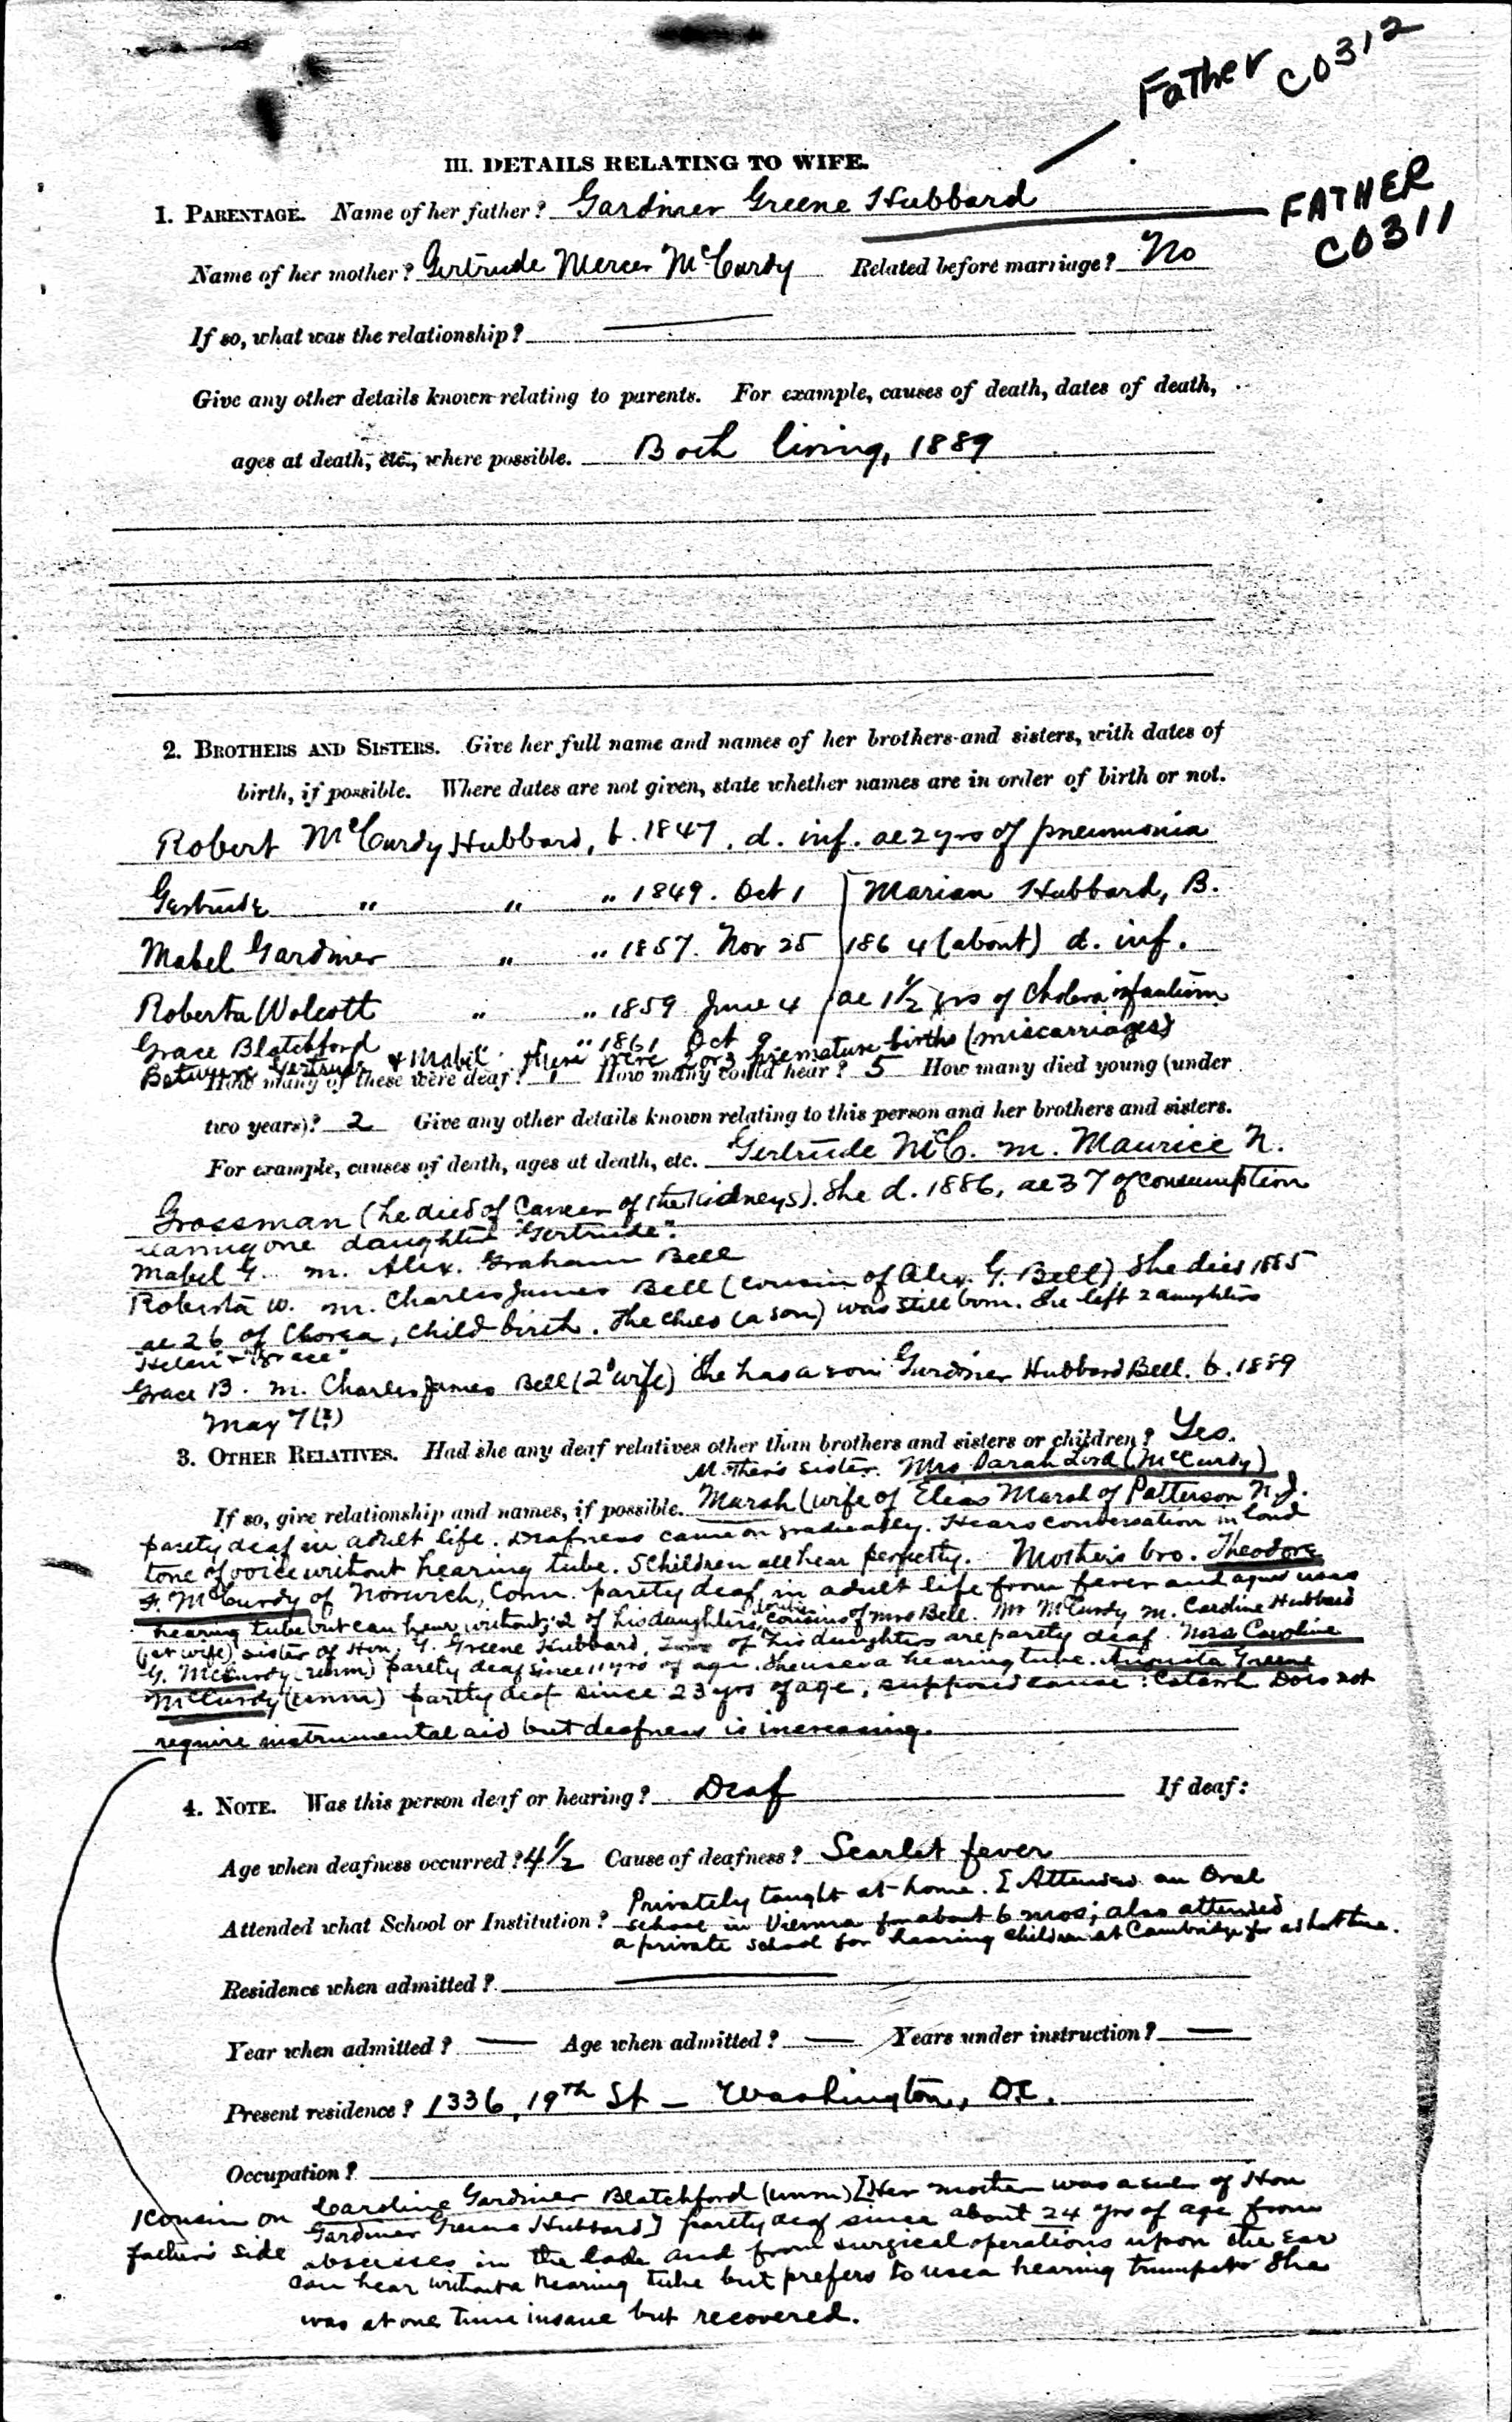 Father C0312
III. DETAILS RELATING TO WIFE.
FATHER
C0311
1. PARENTAGE. Name of her father? Gardiner Greene Hubbard
Name of her mother? Gertrude Mercer McCurdy Related before marriage? No
If so, what was the relationship?
Give any other details known relating to parents. For example, causes of death, dates of death,
ages at death, etc., where possible. Both living, 1889
2. BROTHERS AND SISTERS. Give her full name and names of her brothers and sisters, with dates of
birth, if possible. Where dates are not given, state whether names are in order of birth or not.
Robert McCurdy Hubbard, b. 1847, d. inf. ae 2 yrs of pneumonia
Gertrude " " " 1849. Oct 1 Marian Hubbard, B.
Mabel Gardiner " " 1857. Nov 25 1864 (about) d. inf.
Roberta Wolcott " " 1859 June 4 ae 1½ yrs of Cholera infantum
Grace Blatchford " 1861 Oct 9
Between Gertrude & Mabel there were 2 or 3 premature births (miscarriages)
How many of these were deaf? 1 How many could hear? 5 How many died young (under
two years)? 2 Give any other details known relating to this person and her brothers and sisters.
For example, causes of death, ages at death, etc. Gertrude McC. m. Maurice N.
Grossman (he died of Cancer of the Kidneys). She d. 1886, ae 37 of consumption
leaving one daughter "Gertrude".
Mabel G. m. Alex. Graham Bell
Roberta W. m. Charles James Bell (cousin of Alex. G. Bell) She died 1885
ae 26 of Chorea, child-birth. The child (a son) was still born. She left 2 daughters
"Helen" & "Grace"
Grace B. m. Charles James Bell (2d wife) She has a son Gardiner Hubbard Bell. b. 1889
May 7 (?)
3. OTHER RELATIVES. Had she any deaf relatives other than brothers and sisters or children? Yes.
Mother's sister. Mrs Sarah Lord (McCurdy)
If so, give relationship and names, if possible. Marsh (wife of Elias Marsh of Patterson N.J.
partly deaf in adult life. Deafness came on gradually. Hears conversation in loud
tone of voice without hearing tube. 5 children all hear perfectly. Mother's bro. Theodore
F. McCurdy of Norwich, Conn. partly deaf in adult life from fever and ague uses
hearing tube but can hear without; 2 of his daughters, double cousins of Mrs Bell. Mr McCurdy m. Caroline Hubbard
(1st wife) sister of Hon. G. Greene Hubbard. of his daughters are partly deaf. Miss Caroline
G. McCurdy (unm) partly deaf since 11 yrs of age. She uses a hearing tube. Augusta Greene
McCurdy (unm) partly deaf since 23 yrs of age, supposed cause: Catarrh Does not
require instrumental aid but deafness is increasing.
4. NOTE. Was this person deaf or hearing? Deaf If deaf:
Age when deafness occurred? 4½ Cause of deafness? Scarlet fever
Privately taught at home. Attended an Oral
Attended what School or Institution? school in Vienna for about 6 mos; also attended
a private school for hearing children at Cambridge for a short time.
Residence when admitted?
Year when admitted? — Age when admitted? — Years under instruction? —
Present residence? 1336, 19th St — Washington, D.C.
Occupation?
Cousin on father's side
Caroline Gardiner Blatchford (unm) [Her mother was a sister of Hon
Gardiner Greene Hubbard] partly deaf since about 24 yrs of age from
abscesses in the and from surgical operations upon the ear
Can hear without a hearing tube but prefers to use a hearing trumpet She
was at one time insane but recovered.